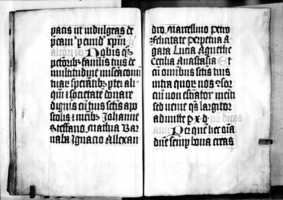 pacis ut indulgeas et
pctam
Nobis q3
pctorib3 famulis tuis de
multitudine miseracōnū
tuar speratib3 ptē ali
qui societatē donare
digneris cū tuis sctis apo
stolis martirib3 Johanne
Steffano Mathia Bar
naba Ignacio Allexan
dro Marcellino Petro
felicitate Perpetua A
gata Lucia Agnethe
Cecilia Anastasia Et
cū omnibus sctis tuis
intra quor nos 9sor
ciū non estiator meriti
sed venie q̄s largitor
admitte p x d
Per quē hec oīa
dn̄e semp bona creas